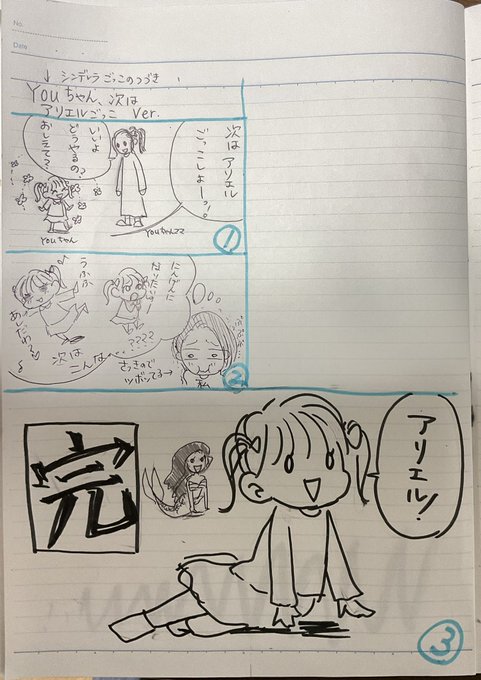 No.
Date
↓シンデレラごっこのつづき
Youちゃん、次は
アリエルごっこ Ver.
次はアリエル
ごっこしよーっ!
いいよ
どうやるの?
おしえて?
Youちゃん
Youちゃんママ
①
にんげんに
なりたいなー
????
うふふ
♪
あしだわぁ
次は
こんな…
さっきので
ツボってる→
私
②
アリエル!
完
③